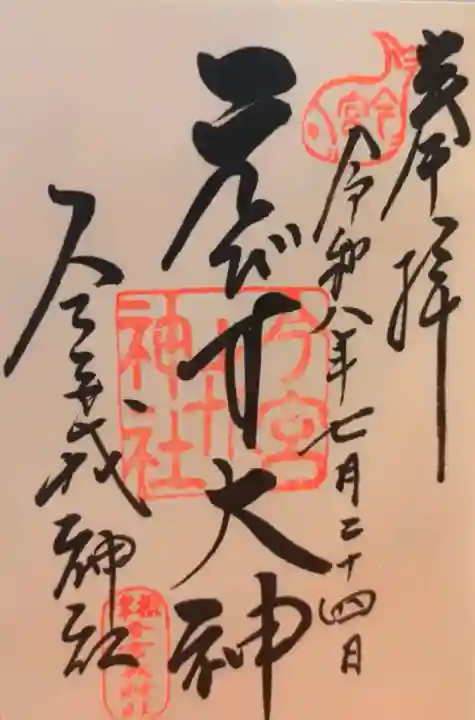 奉拝
今宮
令和八年七月二十四日
ゑびす大神
今宮戎神社
今宮戎神社